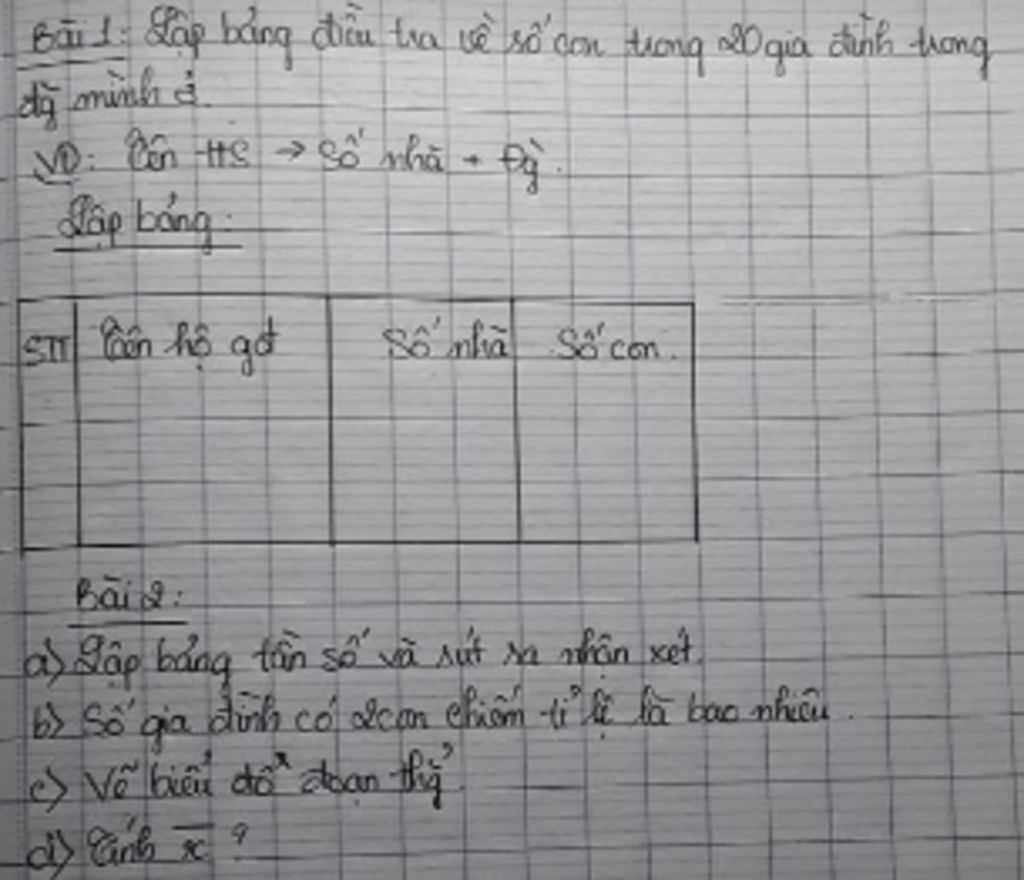 Bài 1: Lập bảng điều tra về số con trong 20 gia đình trong
đg mình ở.
VD: Tên HS → Số nhà + Đg`.
Lập bảng:
STT Tên hộ gđ Số nhà Số con.
Bài 2:
a) Lập bảng tần số và rút ra nhận xét.
b) Số gia đình có 2 con chiếm tỉ lệ là bao nhiêu.
c) Vẽ biểu đồ đoạn thg̉
d) Tính x̄ ?